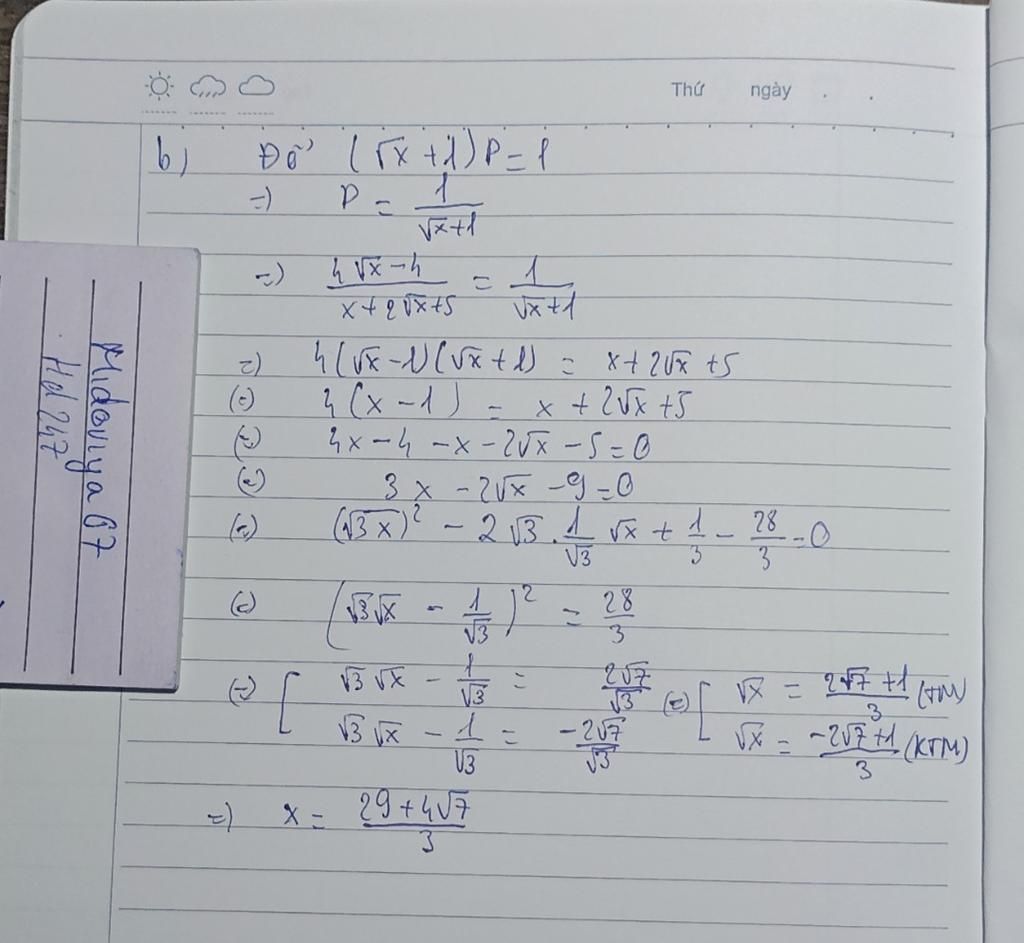 Thứ ngày . .
b) Để (√x + 1) P = 1
=) P = 1/(√x+1)
=) (4√x - 4)/(x + 2√x + 5) = 1/(√x + 1)
=) 4(√x - 1)(√x + 1) = x + 2√x + 5
(=) 4(x - 1) = x + 2√x + 5
(=) 4x - 4 - x - 2√x - 5 = 0
(=) 3x - 2√x - 9 = 0
(=) (√3x)² - 2√3 . 1/√3 √x + 1/3 - 28/3 = 0
(=) (√3√x - 1/√3)² = 28/3
(=) [ √3√x - 1/√3 = 2√7/√3 (=) [ √x = (2√7 + 1)/3 (TM)
√3√x - 1/√3 = -2√7/√3 √x = (-2√7 + 1)/3 (KTM)
=) x = (29 + 4√7)/3
Midoriya 67
Hd 247